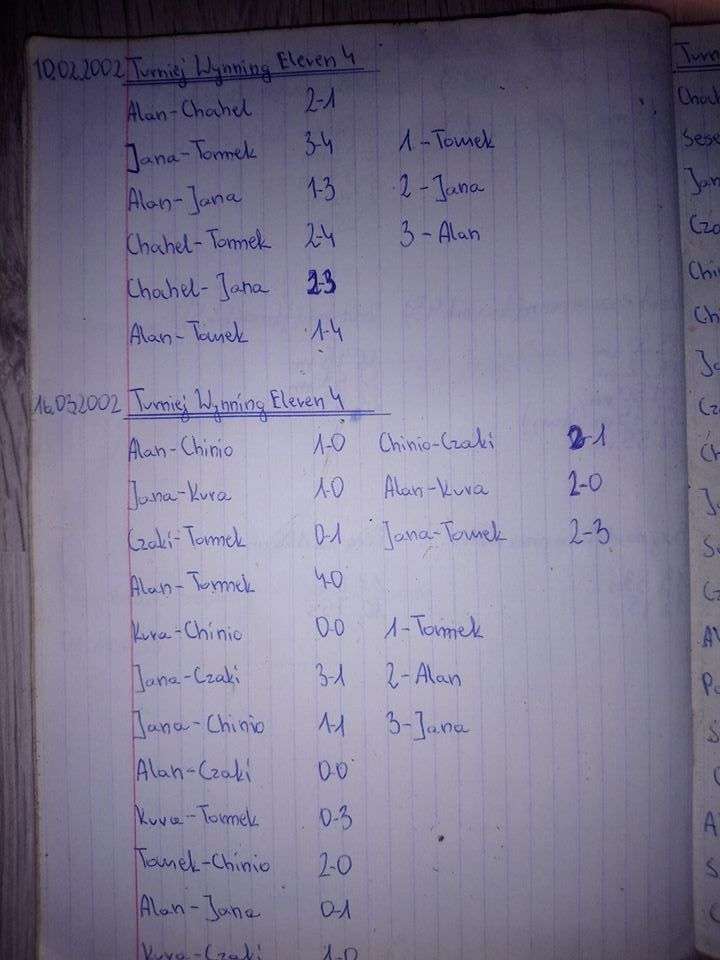 10.02.2002 Turniej Wynning Eleven 4
Alan-Chahel 2-1
Jana-Tomek 3-4 1-Tomek
Alan-Jana 1-3 2-Jana
Chahel-Tomek 2-4 3-Alan
Chahel-Jana 2-3
Alan-Tomek 1-4
16.03.2002 Turniej Wynning Eleven 4
Alan-Chinio 1-0 Chinio-Czaki 2-1
Jana-Kura 1-0 Alan-Kura 2-0
Czaki-Tomek 0-1 Jana-Tomek 2-3
Alan-Tomek 4-0
Kura-Chinio 0-0 1-Tomek
Jana-Czaki 3-1 2-Alan
Jana-Chinio 1-1 3-Jana
Alan-Czaki 0-0
Kura-Tomek 0-3
Tomek-Chinio 2-0
Alan-Jana 0-1
Kura-Czaki 1-0